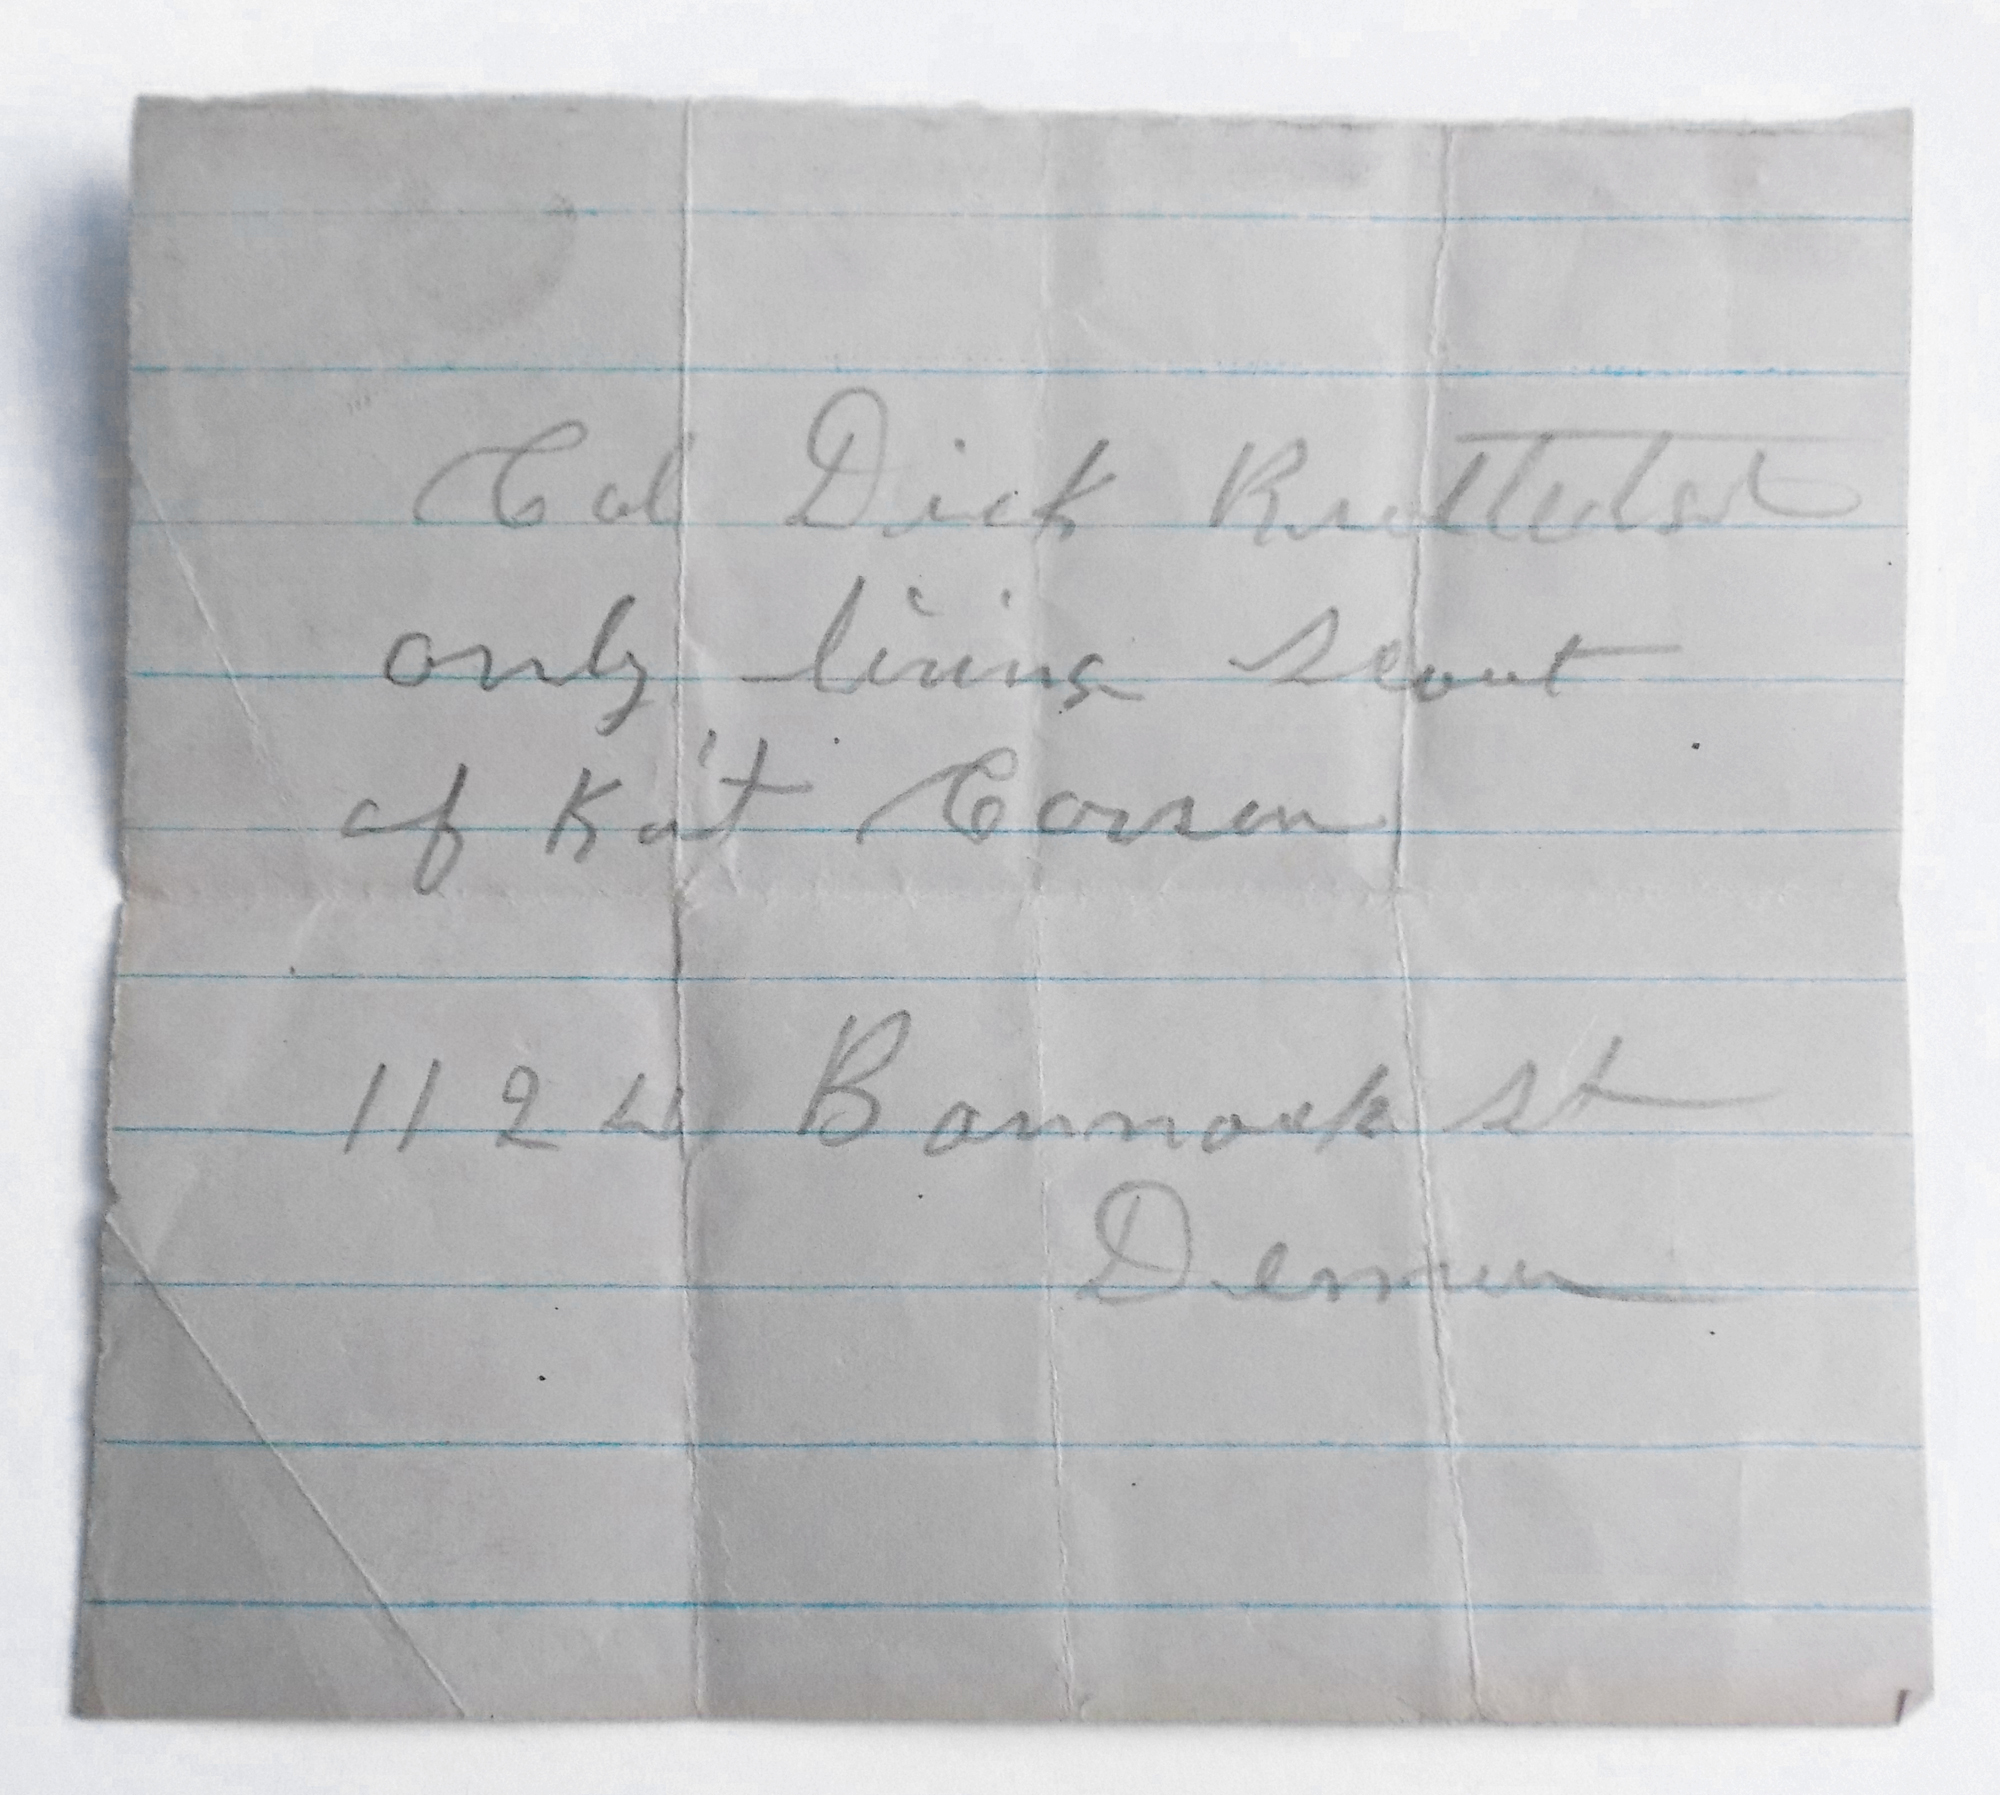 Col Dick
only living scout
of Kit Carson
1124 Bannock st
Denver